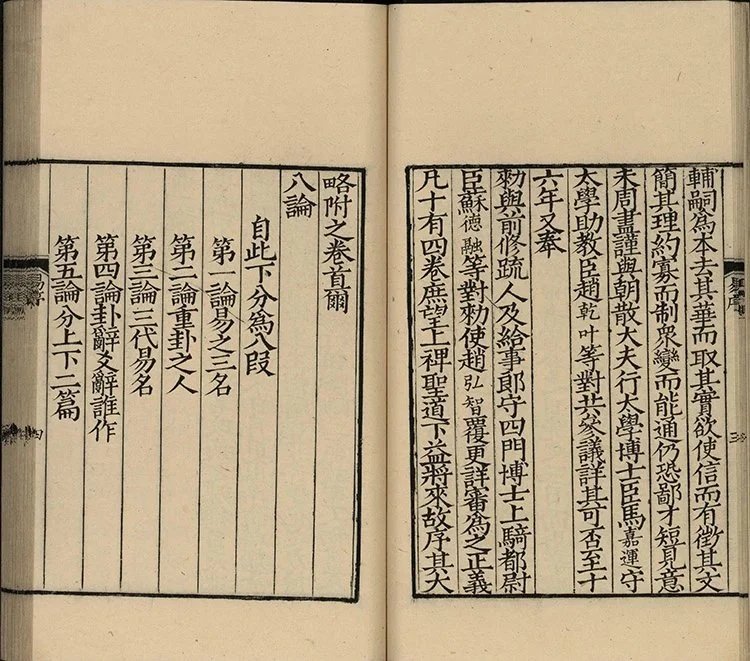 輔嗣爲本去其華而取其實欲使信而有徵其文
簡其理約寡而制衆變而能通仍恐鄙才短見意
未周盡謹與朝散大夫行太學博士臣馬嘉運守
太學助教臣趙乾叶等對共參議詳其可否至十
六年又奉
勑與前修疏人及給事郎守四門博士上騎都尉
臣蘇德融等對勑使趙弘智覆更詳審爲之正義
凡十有四卷庶望上裨聖道下益將來故序其大
略附之卷首爾
八論
自此下分爲八段
第一論易之三名
第二論重卦之人
第三論三代易名
第四論卦辭爻辭誰作
第五論分上下二篇
易序
三
易序
四